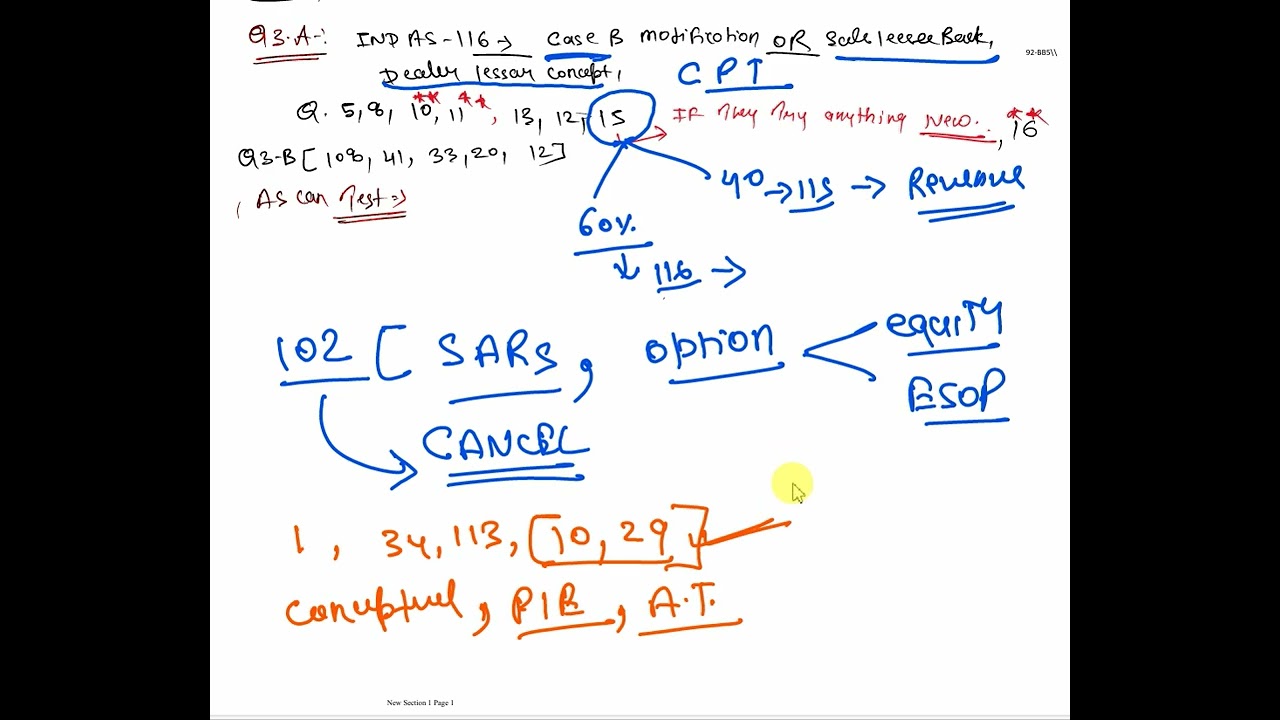 Q3.A-: IND AS-116→ Case B modification OR Sale leese Back,
92-BB5\\
Dealer lessor concept, CPT
Q. 5, 8, 10**, 11**, 13, 12, 15 → IF They Try anything New.., 16**
Q3-B [108, 41, 33, 20, 12]
40 → 115 → Revenue
, AS can Test⇒
60%.
↓ 116 →
102 [ SARS, option
equity
ESOP
CANCEL
1, 34, 113, [10, 29]
conceptual, PIR, A.T.
New Section 1 Page 1